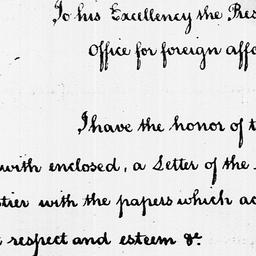 To his Excellency the Pres
Office for foreign affa
I have the honor of t
with enclosed, a Letter of the
tier with the papers which ac
respect and esteem &c.